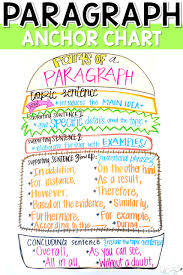 PARAGRAPH
ANCHOR CHART
PARTS OF A
PARAGRAPH
topic sentence
introduces the MAIN IDEA
supporting sentence 1
give specific details about the topic
supporting sentence 2
with EXAMPLES!
supporting sentence
transitional phrases!
In addition,
For instance,
However,
Based on the evidence,
Furthermore,
According to
On the other hand
As a result,
Therefore,
Similarly,
For example,
During
CONCLUDING sentence
the topic sentence!
Overall,
All in all,
As you can see,
Without a doubt,